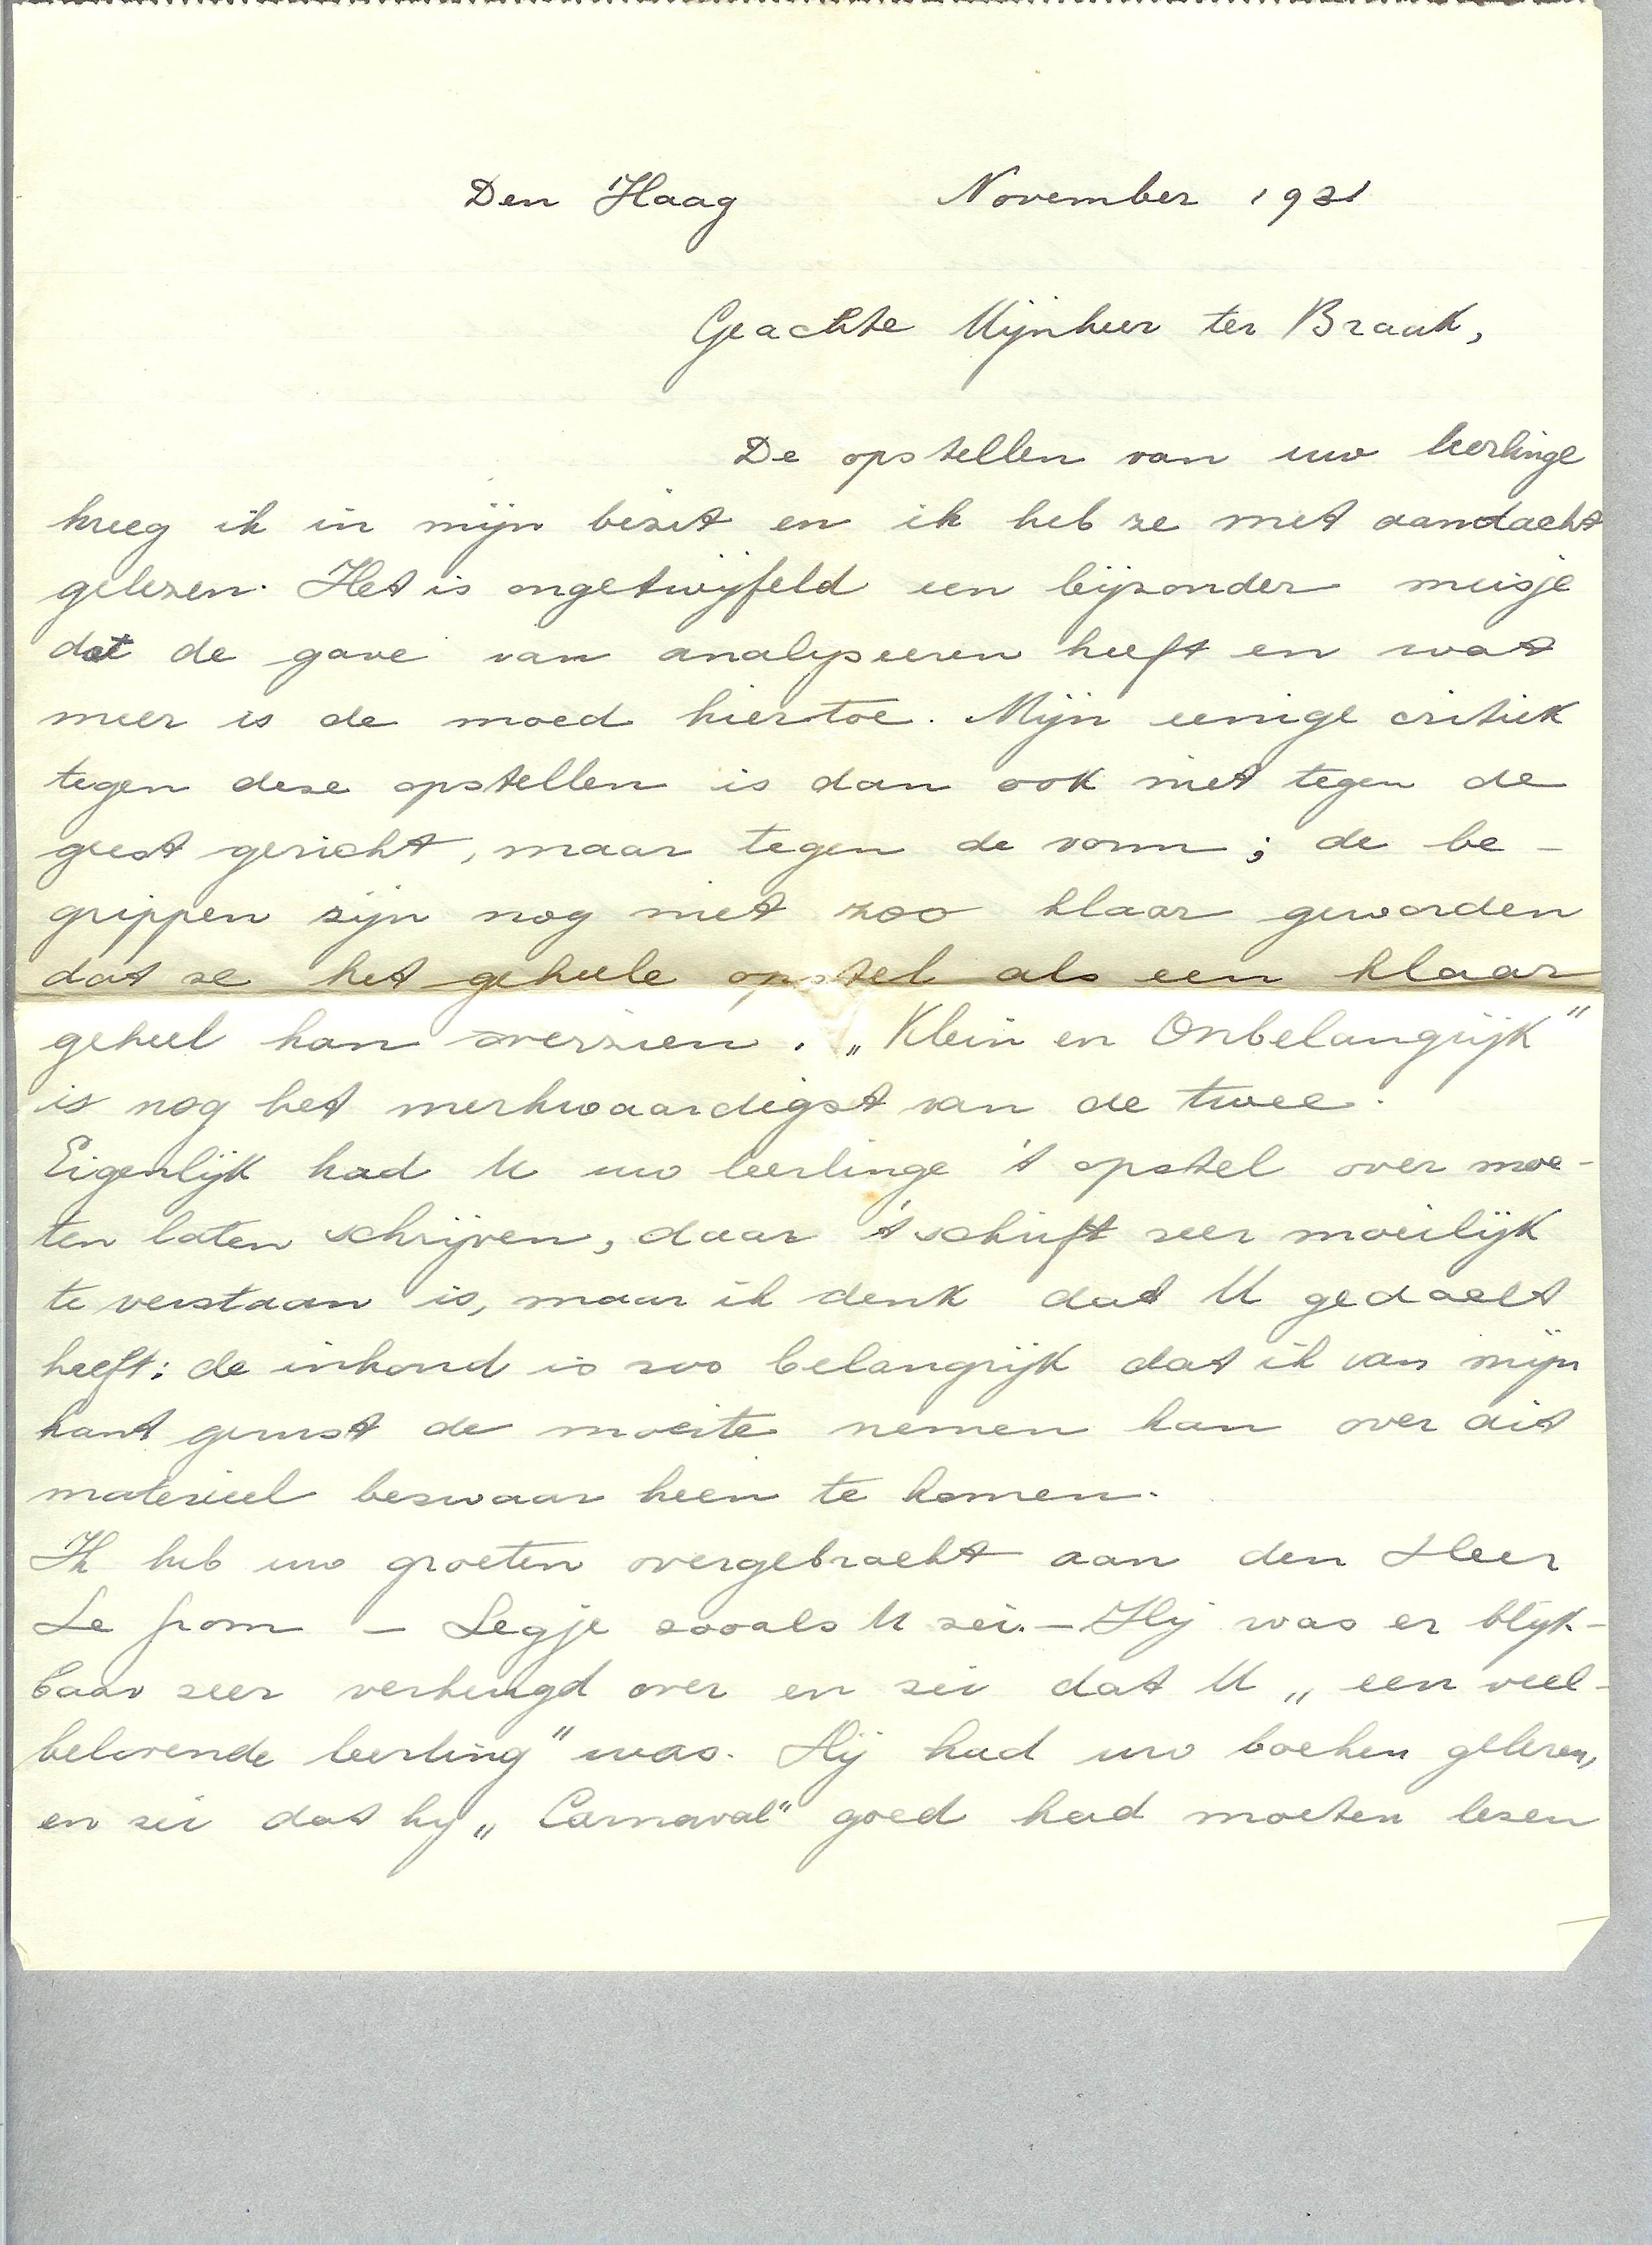 Den Haag November 1931
Geachte Mijnheer ter Braak,
De opstellen van uw leerlinge
kreeg ik in mijn bezit en ik heb ze met aandacht
gelezen. Het is ongetwijfeld een bijzonder meisje
dat de gave van analyseeren heeft en wat
meer is de moed hiertoe. Mijn eenige critiek
tegen deze opstellen is dan ook niet tegen de
geest gericht, maar tegen de vorm; de be-
grippen zijn nog niet zoo klaar geworden
dat ze het geheele opstel als een klaar
geheel kan overzien. „Klein en Onbelangrijk"
is nog het merkwaardigst van de twee.
Eigenlijk had U uw leerlinge 't opstel over moe-
ten laten schrijven, daar 't schrift zeer moeilijk
te verstaan is, maar ik denk dat U gedacht
heeft: de inhoud is zoo belangrijk dat ik van mijn
kant gerust de moeite nemen kan over dit
materieel bezwaar heen te komen.
Ik heb uw groeten overgebracht aan den Heer
Le – Legje zooals U zei. – Hij was er blijk-
baar zeer verheugd over en zei dat U „een veel-
belovende leerling" was. Hij had uw boeken gelezen,
en zei dat hij „Carnaval" goed had moeten lezen